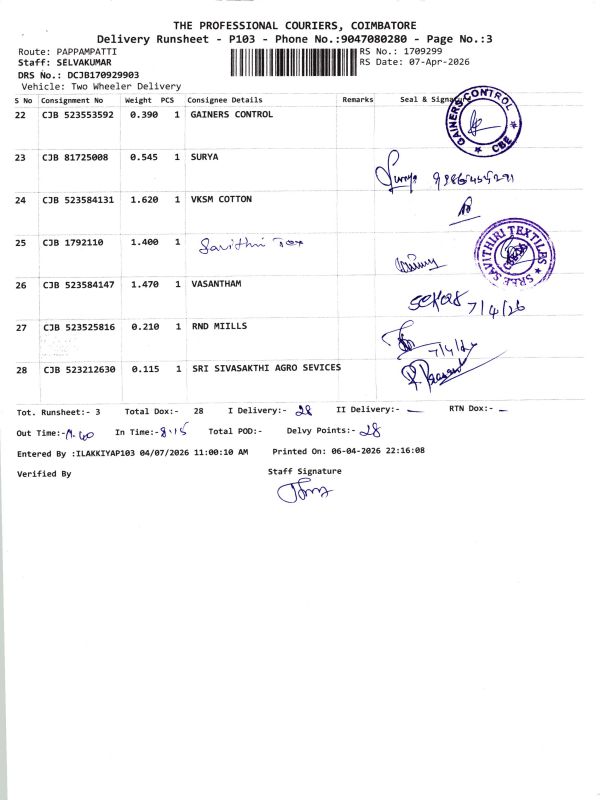 THE PROFESSIONAL COURIERS, COIMBATORE
Delivery Runsheet - P103 - Phone No.:9047080280 - Page No.:3
Route: PAPPAMPATTI RS No.: 1709299
Staff: SELVAKUMAR RS Date: 07-Apr-2026
DRS No.: DCJB170929903
Vehicle: Two Wheeler Delivery
S No Consignment No Weight PCS Consignee Details Remarks Seal & Signa
22 CJB 523553592 0.390 1 GAINERS CONTROL
GAINERS CONTROL ★ CBE ★
23 CJB 81725008 0.545 1 SURYA
Surya
24 CJB 523584131 1.620 1 VKSM COTTON
25 CJB 1792110 1.400 1 Savithri Tex
SREE SAVITHIRI TEXTILES ★
26 CJB 523584147 1.470 1 VASANTHAM
Sekar 7/4/26
27 CJB 523525816 0.210 1 RND MIILLS
7/4/26
28 CJB 523212630 0.115 1 SRI SIVASAKTHI AGRO SEVICES
Tot. Runsheet:- 3 Total Dox:- 28 I Delivery:- 28 II Delivery:- — RTN Dox:- —
Out Time:- In Time:-8.15 Total POD:- Delvy Points:- 28
Entered By :ILAKKIYAP103 04/07/2026 11:00:10 AM Printed On: 06-04-2026 22:16:08
Verified By Staff Signature